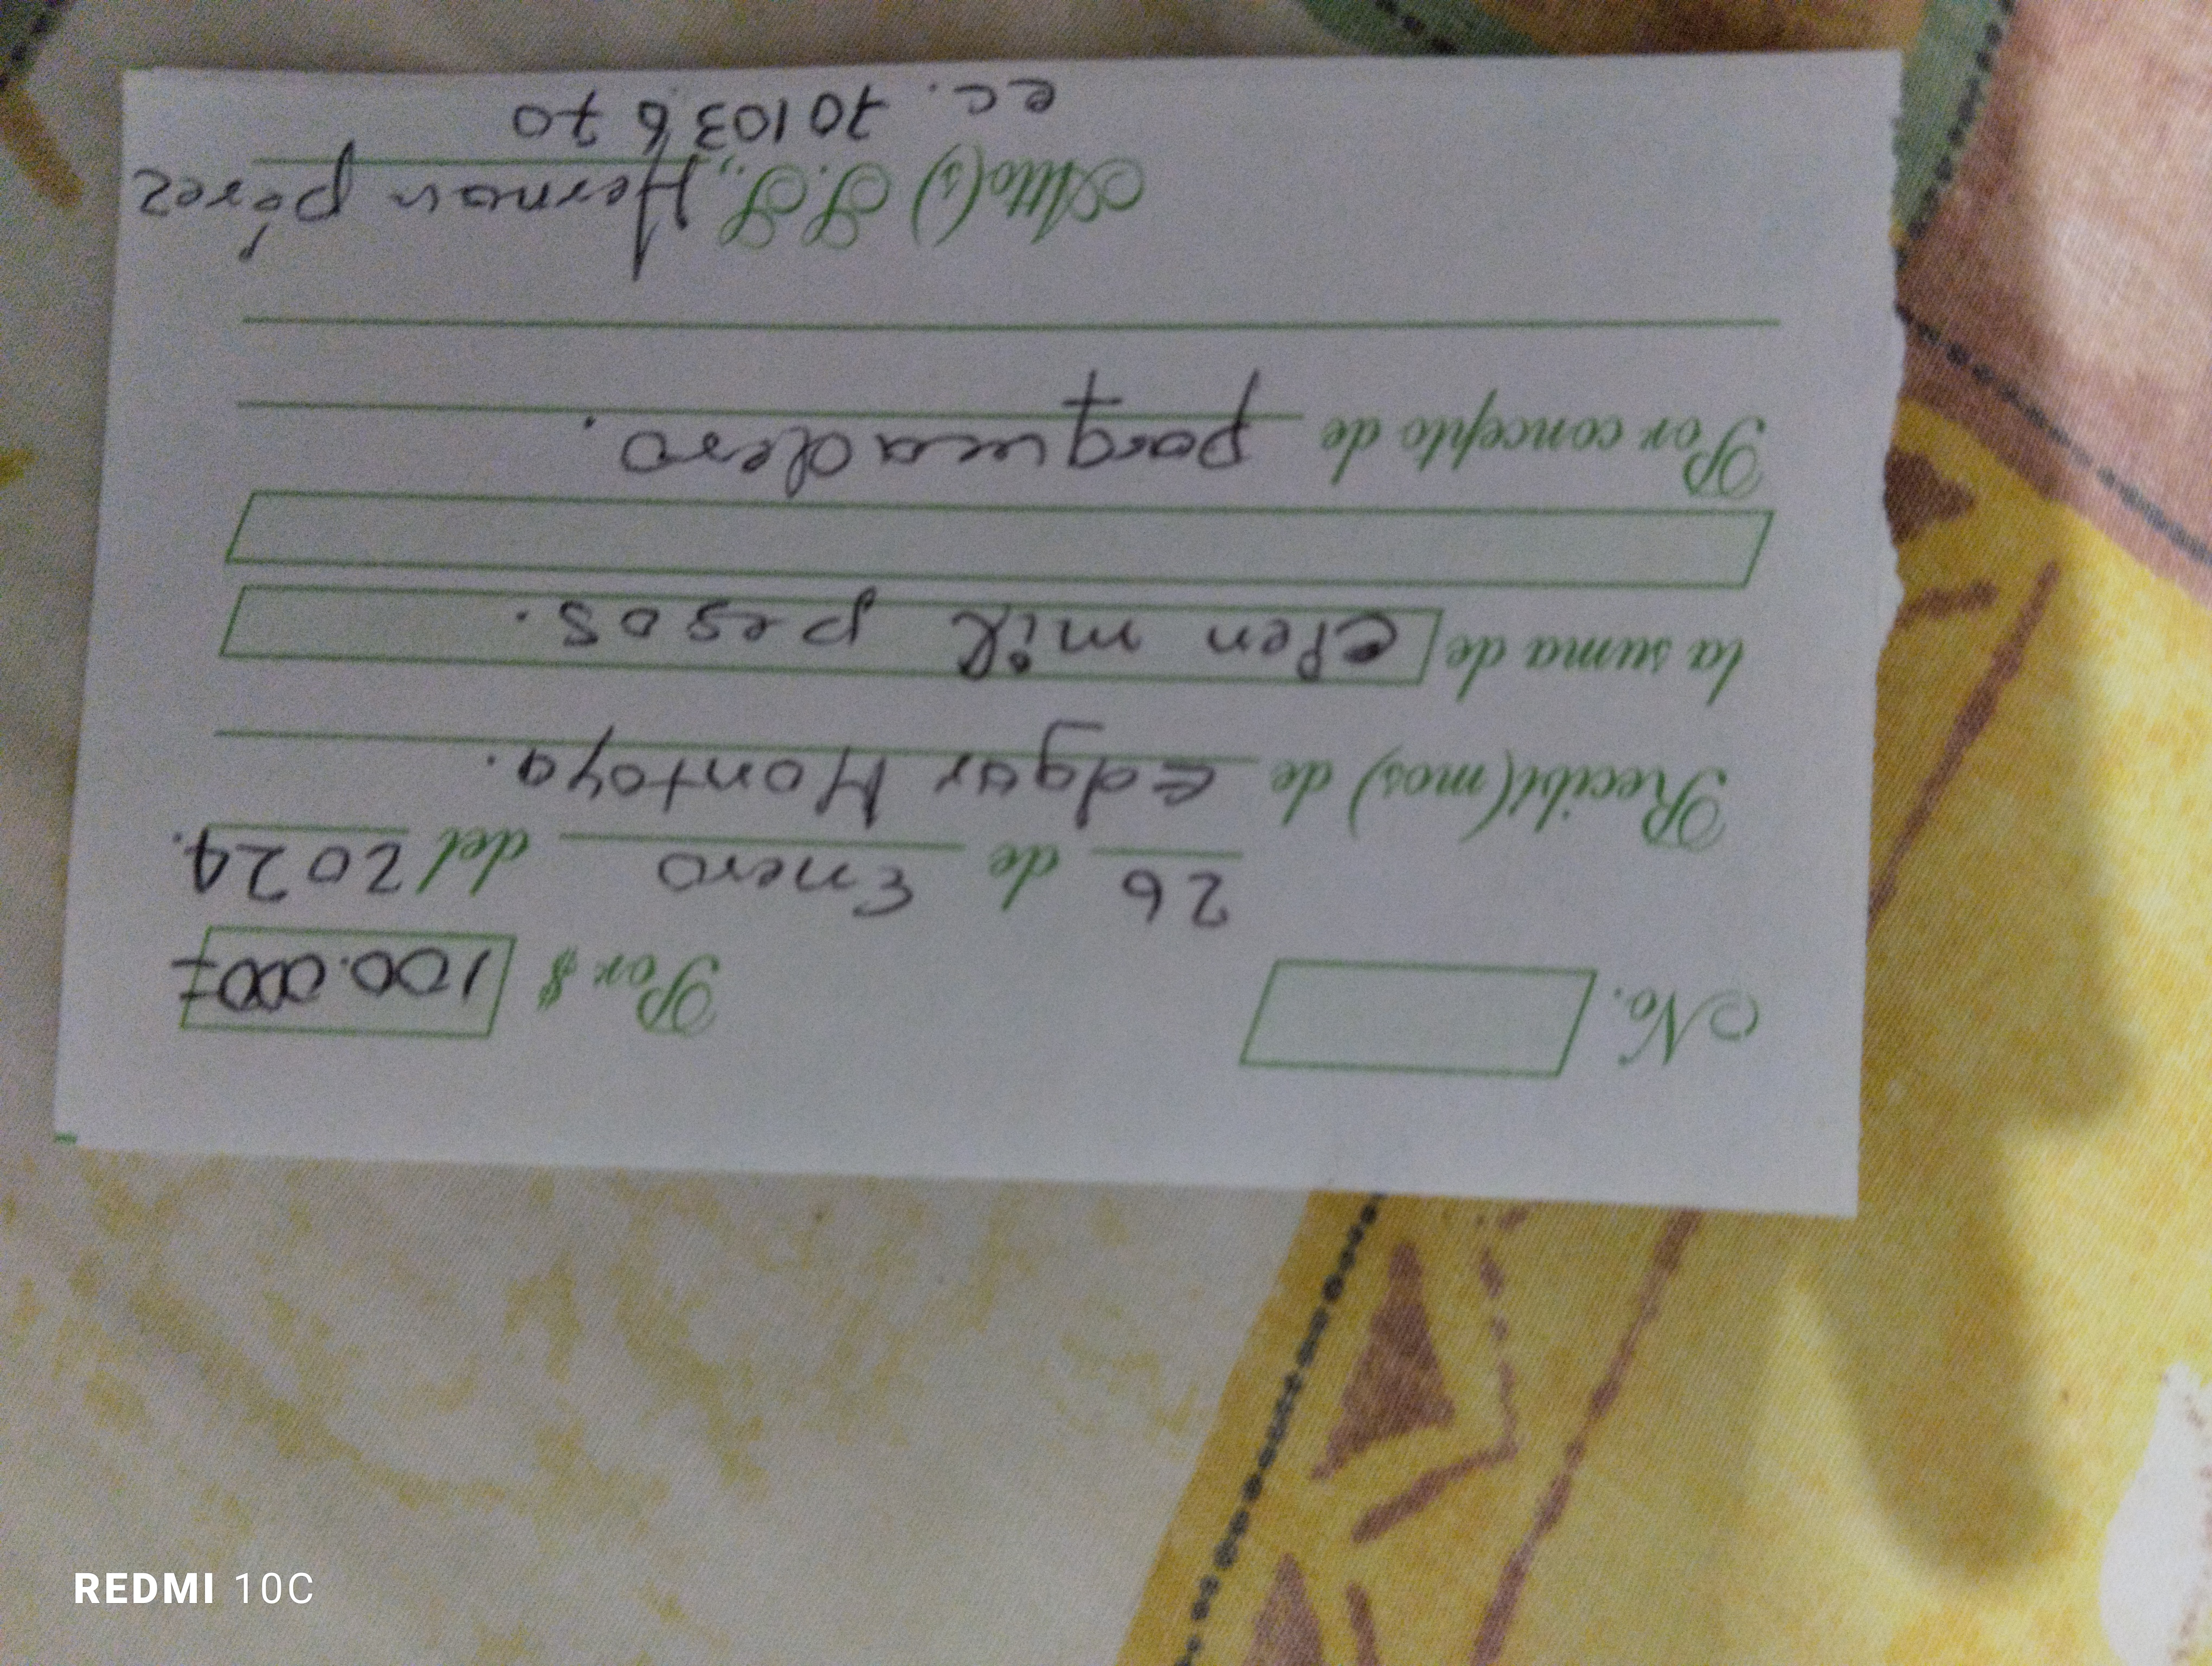 No. Por $ 100.000
26 de Enero del 2024.
Recibí(mos) de Edgar Montoya.
la suma de cien mil pesos.
Por concepto de parqueadero.
Atto(s) S.S., Hernan pérez
cc. 70103670
REDMI 10C